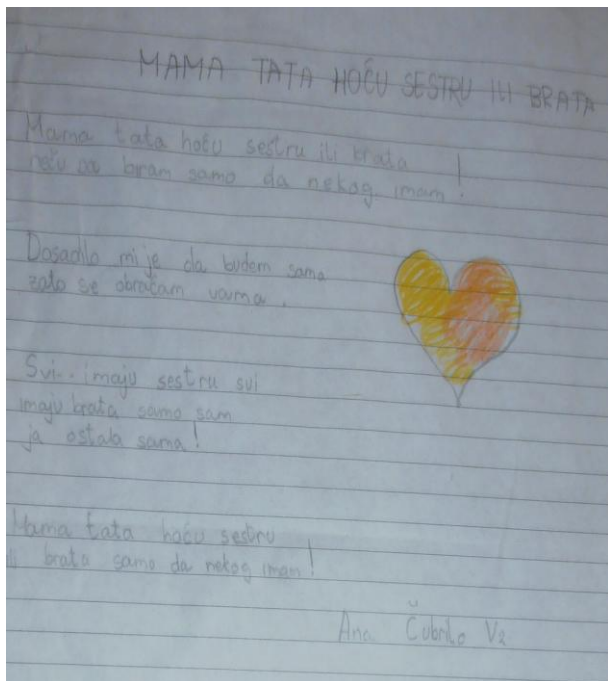 MAMA TATA HOĆU SESTRU ILI BRATA
Mama tata hoću sestru ili brata
neću da biram samo da nekog imam!
Dosadilo mi je da budem sama
zato se obraćam vama.
Svi.. imaju sestru svi
imaju brata samo sam
ja ostala sama!
Mama tata hoću sestru
ili brata samo da nekog imam!
Ana Čubrilo V2